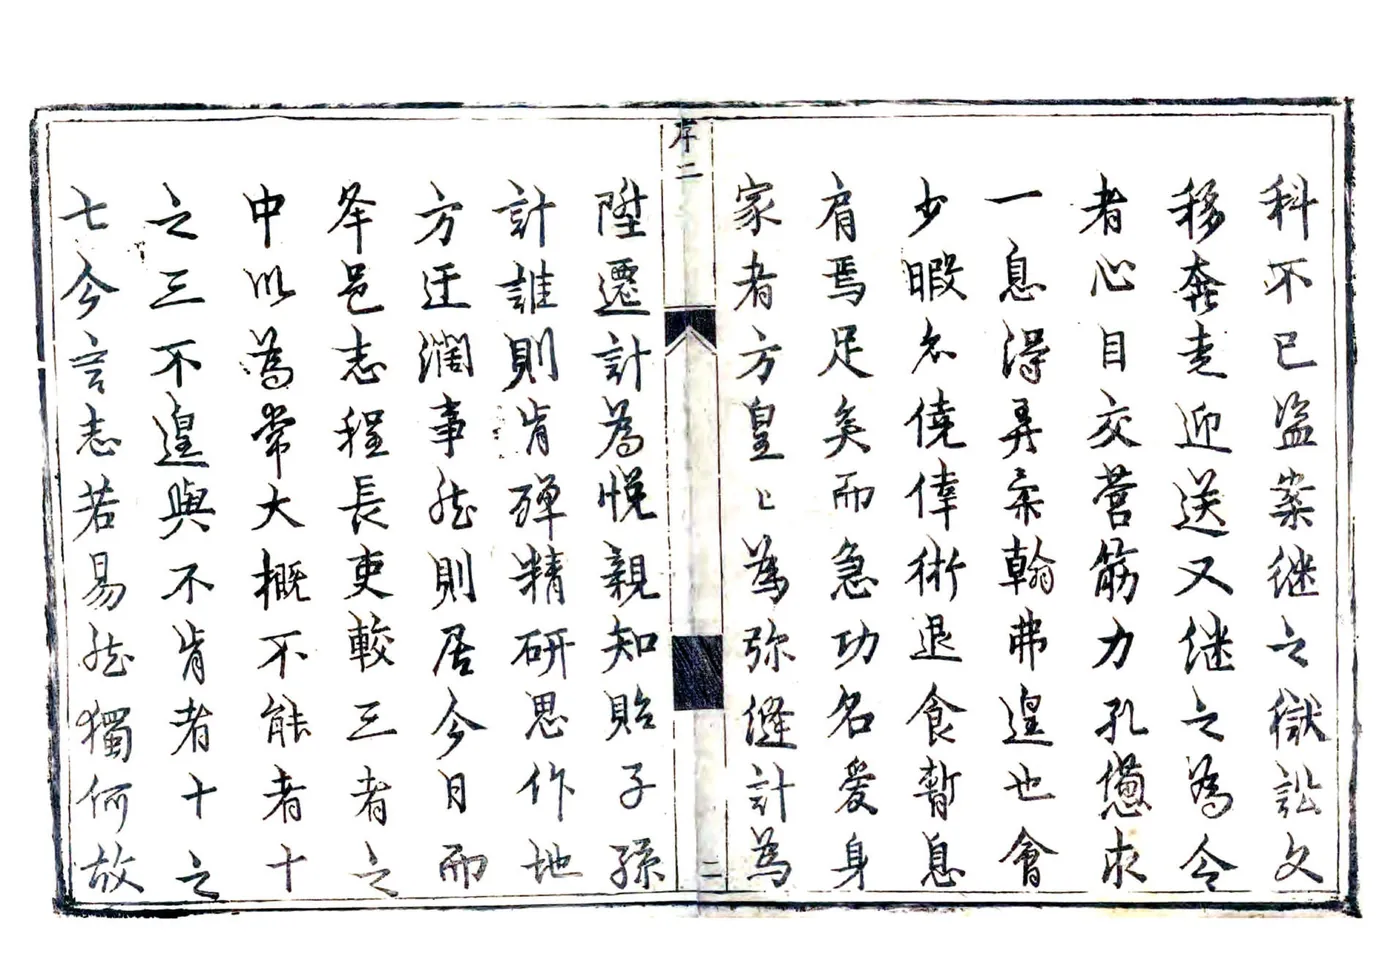 科不已盜案继之獄訟文
移奔走迎送又继之為令
者心目交营筋力孔憊求
一息得弄柔翰弗遑也會
少暇名僥倖術退食暫息
肩焉足矣而急功名爱身
家者方皇〻為弥缝計為
序二
二
陞遷計為悅親知貽子孫
計誰則肯殫精研思作地
方迂濶事然則居今日而
牟邑志程長吏較三者之
中以為常大概不能者十
之三不遑與不肯者十之
七今言志若易然獨何故